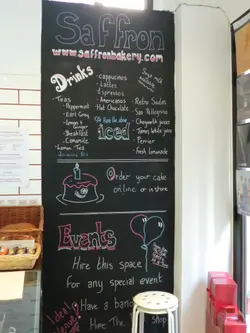 Saffron
www.saffronbakery.com
Drinks
Teas
Peppermint
Earl Grey
Lemon &
Ginger
Breakfast
Camomile
Lemon Tea
cappucinos
Lattes
Espressos
Americanos
Hot Chocolate
We have the above
iced
Soya milk
available
Retro Sodas
San Pellegrino
Chegworth juices
James White juices
Perrier
Fresh lemonade
Order your cake
online or in store
Events
Hire this space
For any special event
Have a band
Hire The
Shop
Ideal